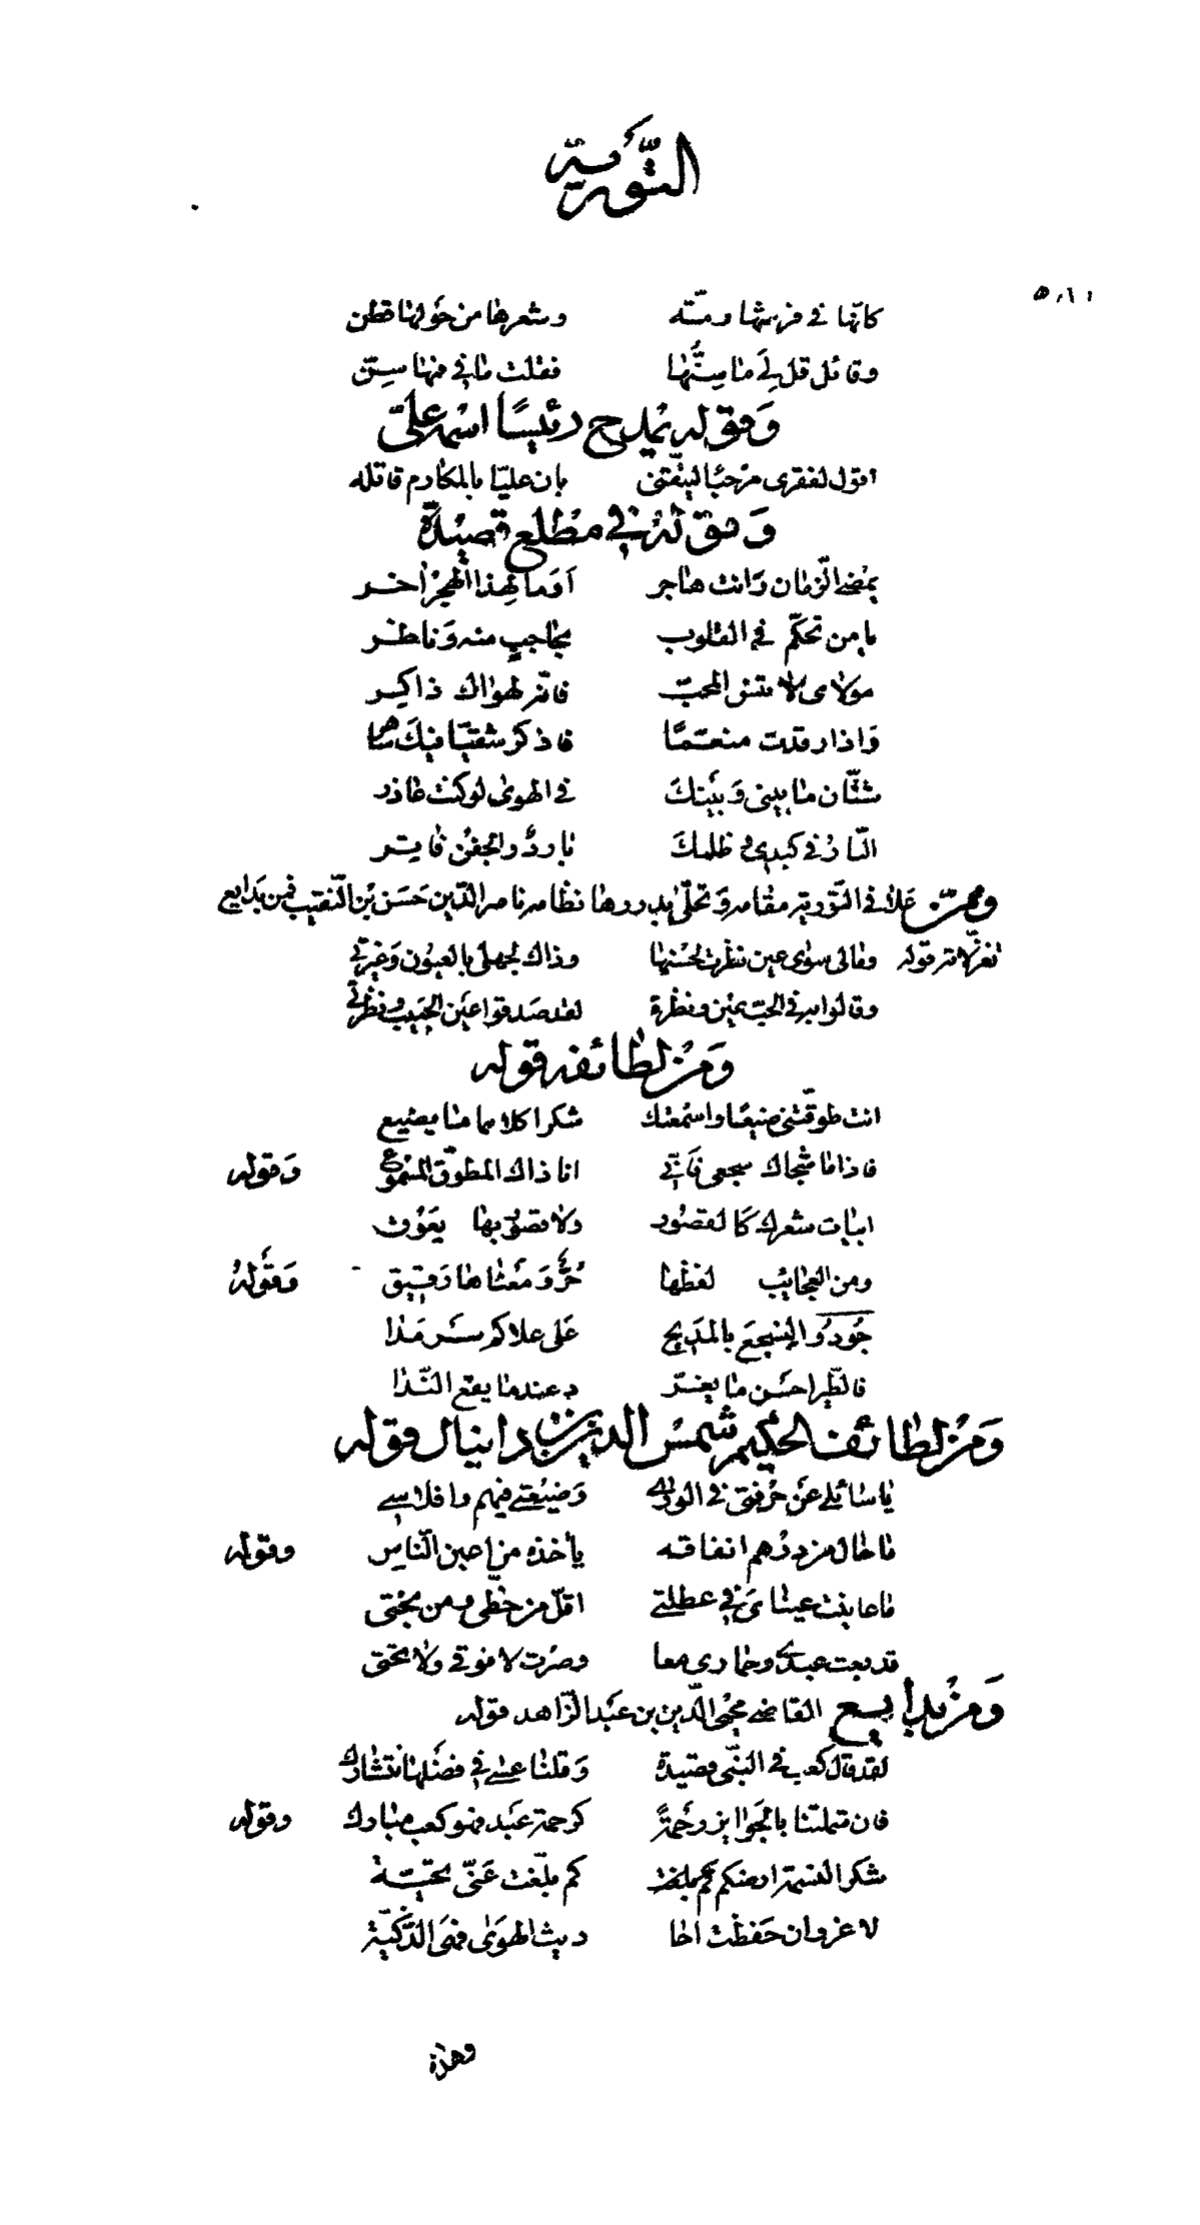 التّورية
كانّها في فرشها رمّته وشعرها من حَولها قطن
وقائل قل لِي ما سِنُّها فقلت ما في فمها سِنّ
وَقوله يمدح رئيسًا اسمه علىّ
اقول لفقرى مرحبًا لتيقّنى بان عليّا بالمكارم قاتله
وَقوله في مطلع قصيدة
يمضى الزّمان وَانت هاجر اَوَما لهذا الهجر اخر
يا من تحكّم في القلوب بحاجبٍ منه وَناظر
مولاى لا تنس المحبّ فانّه لهواك ذاكر
وَاذا رقدت منعّمًا فاذكر شقيّا فيك ساهر
شتّان ما بينى وَبينكَ في الهوى لو كنت عاذر
النّار في كبدى وظلمكَ باردٌ والجفن فاتر
وممّن علا في التّورية مقامه وَتحلّى بدررها نظامه ناصر الدّين حَسَن بن النّقيب فمن بدايع
تغزّلاته قوله ومالى سوى عين نظرت لحُسنها وذاك لجهلى بالعيون وَغرتى
وقالوا به في الحبّ عين ونظرة لقد صَدقوا عَين الحَبيب ونظرتى
وَمن لطائفه قوله
انت طوقتنى صنيعًا واسمعتك شكرا كلاهما ما يضيع
فاذا ما شجاك سجعى فانّى انا ذاك المطوّق المسموع وَقوله
ابيات شعرك كالقصور ولا قصورٌ بها يعَوق
ومن العجايب لفظها حُرٌّ وَمَعناها رَقيق وَقَولهُ
جُودوا لِنسجعَ بالمَديح عَلى علاكم سَرمَدا
فالطّير احسَن ما يغرّ د عندما يقع النّدا
وَمن لطائف الحكيم شمس الدين بن دانيال قوله
يا سائلى عَن حرفتى في الورى وَضيعَتى فيهم وافلاسى
ما حال من درهم انفاقه يأخذه من اعين النّاسِ وقوله
ما عاينت عيناىَ في عطلتى اقلّ من حظّى ومن بختى
قد بعت عبدى وحمارى معا وصرت لا فوقى ولا تحتى
وَمن بدايع القاضى محيى الدّين بن عَبد الزّاهد قوله
لقد قال كعب في النبّى قصيدة وَقلنا عسى في فضلها نتشارك
فان شملتنا بالجَوايز رحمةً كرحمة كعب فهو كعب مبارك وقوله
شكرا لنسمة ارضكم كم بلّغت عَنّى تحيّة
لا غرو ان حَفظت احا ديث الهَوَى فهى الذّكيّة
وهذه